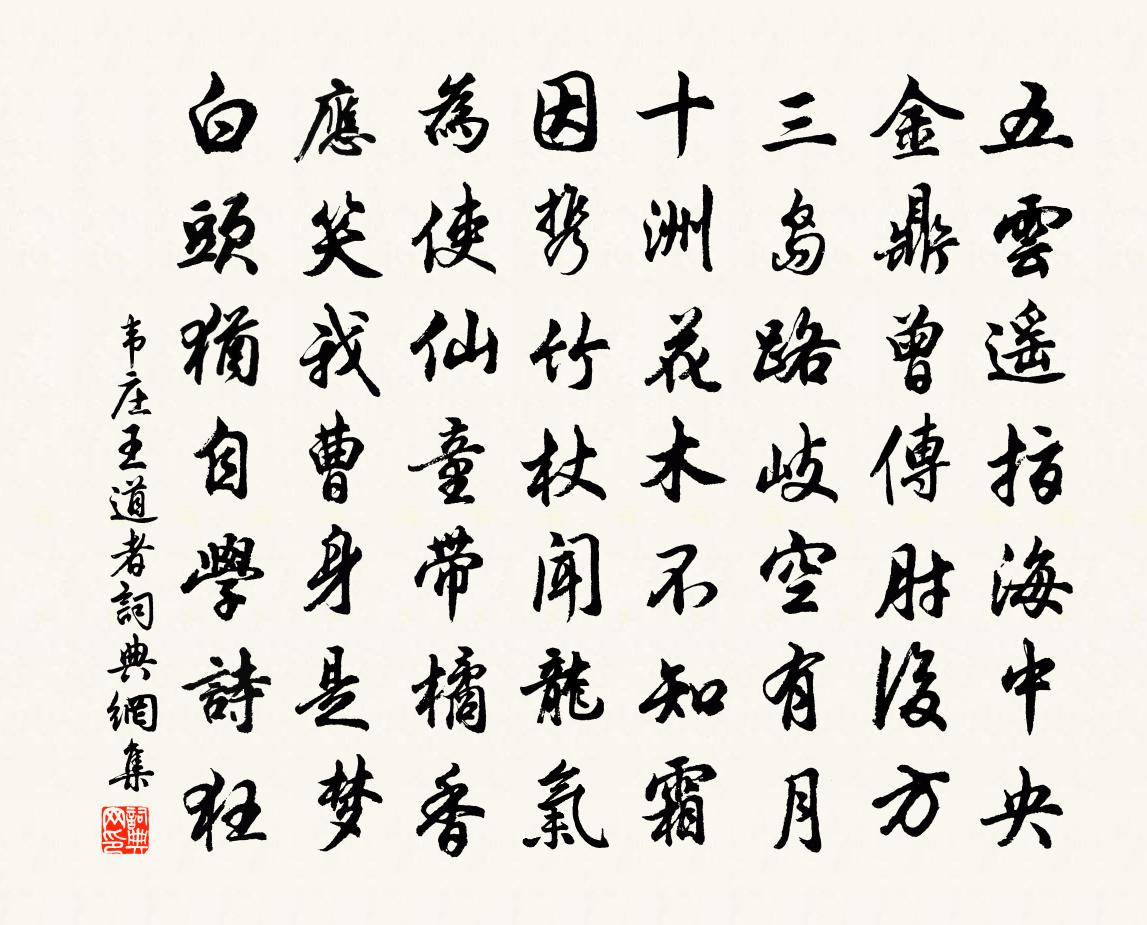 五雲遥指海中央
金鼎曾傳肘後方
三島路岐空有月
十洲花木不知霜
因携竹杖聞龍氣
為使仙童帶橘香
應笑我曹身是梦
白頭猶自學詩狂
韦庄王道者詞典網集
詞典
网印